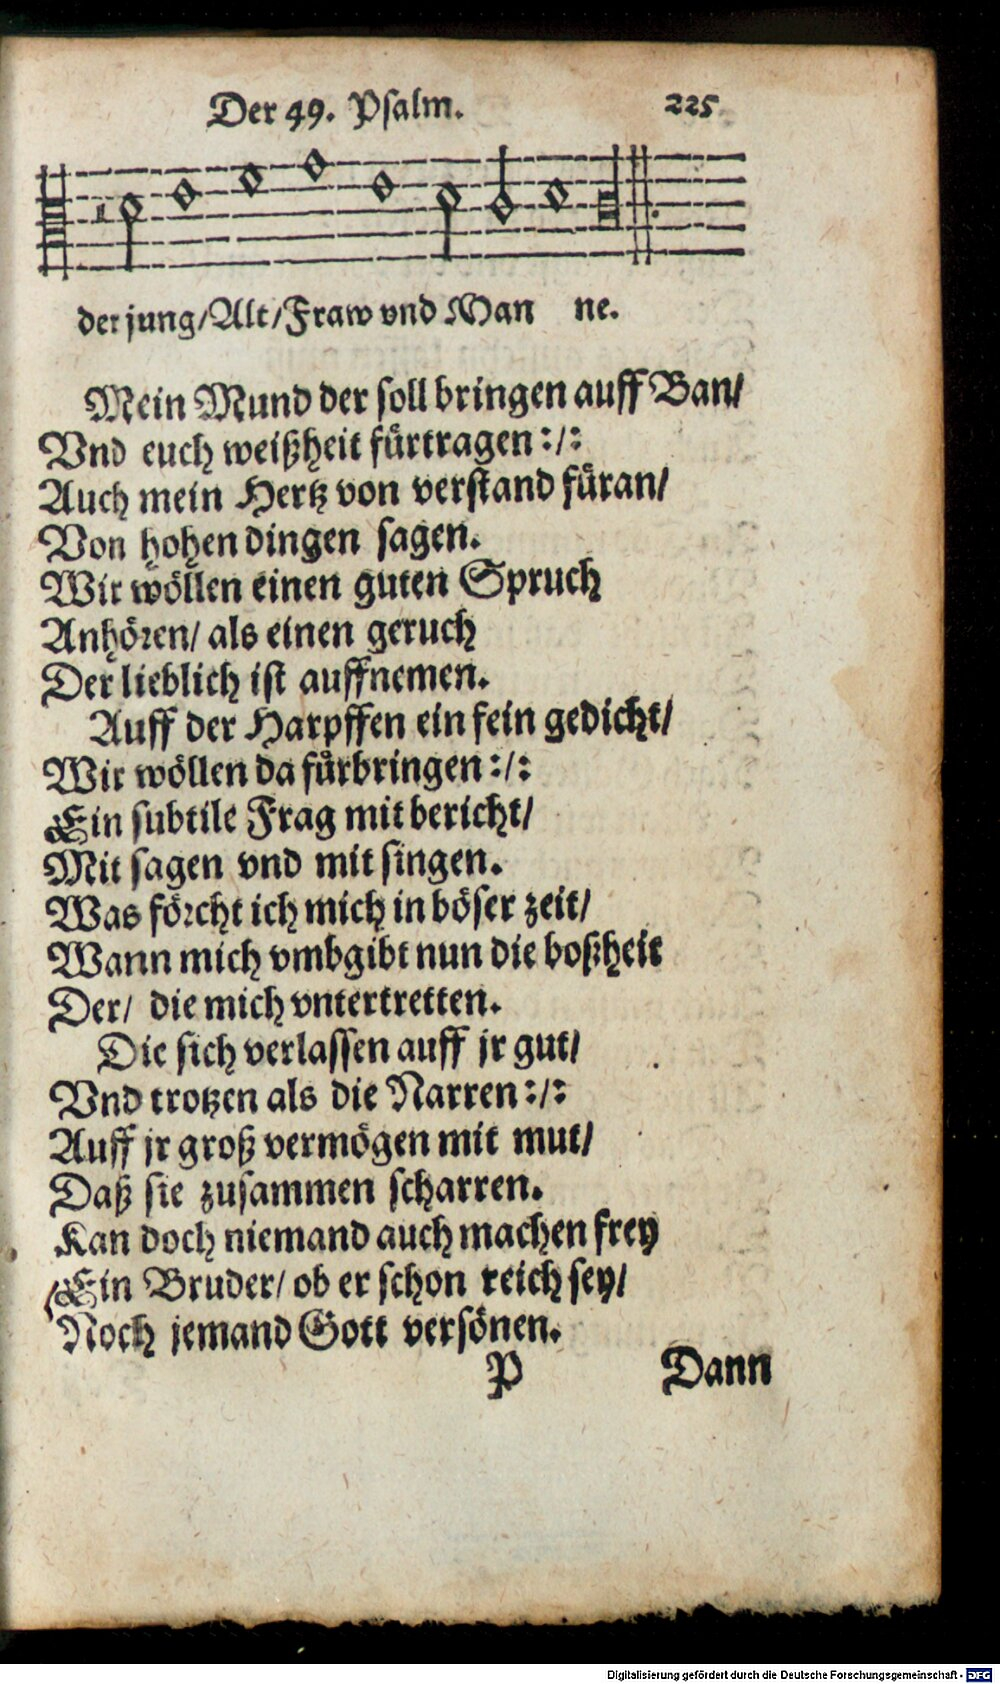 Der 49. Psalm. 225
der jung/Alt/Fraw vnd Man ne.
Mein Mund der soll bringen auff Ban/
Vnd euch weißheit fürtragen:/:
Auch mein Hertz von verstand füran/
Von hohen dingen sagen.
Wir wöllen einen guten Spruch
Anhören/ als einen geruch
Der lieblich ist auffnemen.
Auff der Harpffen ein fein gedicht/
Wir wöllen da fürbringen:/:
Ein subtile Frag mit bericht/
Mit sagen vnd mit singen.
Was förcht ich mich in böser zeit/
Wann mich vmbgibt nun die boßheit
Der/ die mich vntertretten.
Die sich verlassen auff jr gut/
Vnd trotzen als die Narren:/:
Auff jr groß vermögen mit mut/
Daß sie zusammen scharren.
Kan doch niemand auch machen frey
(Ein Bruder/ ob er schon reich sey/
Noch jemand Gott versönen.
P Dann
Digitalisierung gefördert durch die Deutsche Forschungsgemeinschaft - DFG